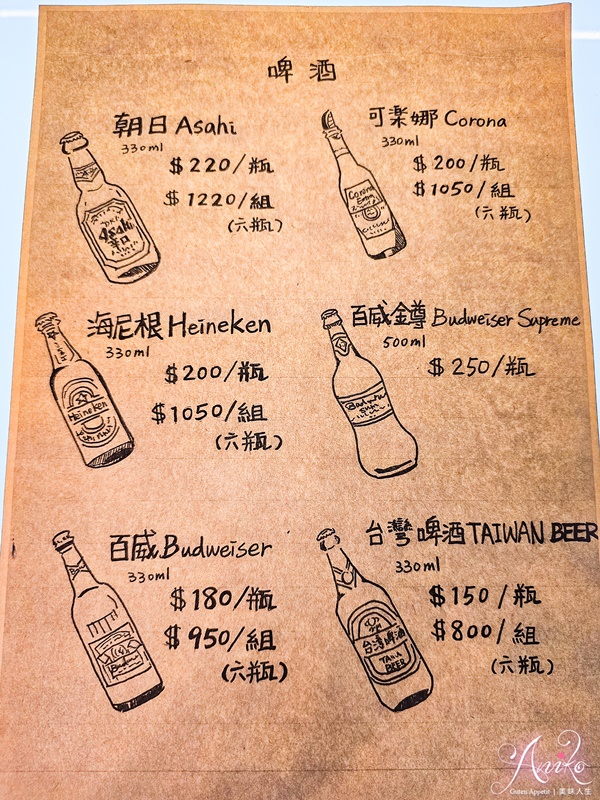 啤酒
朝日 Asahi
330ml
$220/瓶
$1220/組
(六瓶)
Asahi
辛口
可楽娜 Corona
330ml
$200/瓶
$1050/組
(六瓶)
Corona
Extra
海尼根 Heineken
330ml
$200/瓶
$1050/組
(六瓶)
Heineken
百威金尊 Budweiser Supreme
500ml
$250/瓶
百威 Budweiser
330ml
$180/瓶
$950/組
(六瓶)
台灣啤酒 TAIWAN BEER
330ml
$150/瓶
$800/組
(六瓶)
台灣啤酒
BEER
Aniko
Guten Appetit | 美妹人生